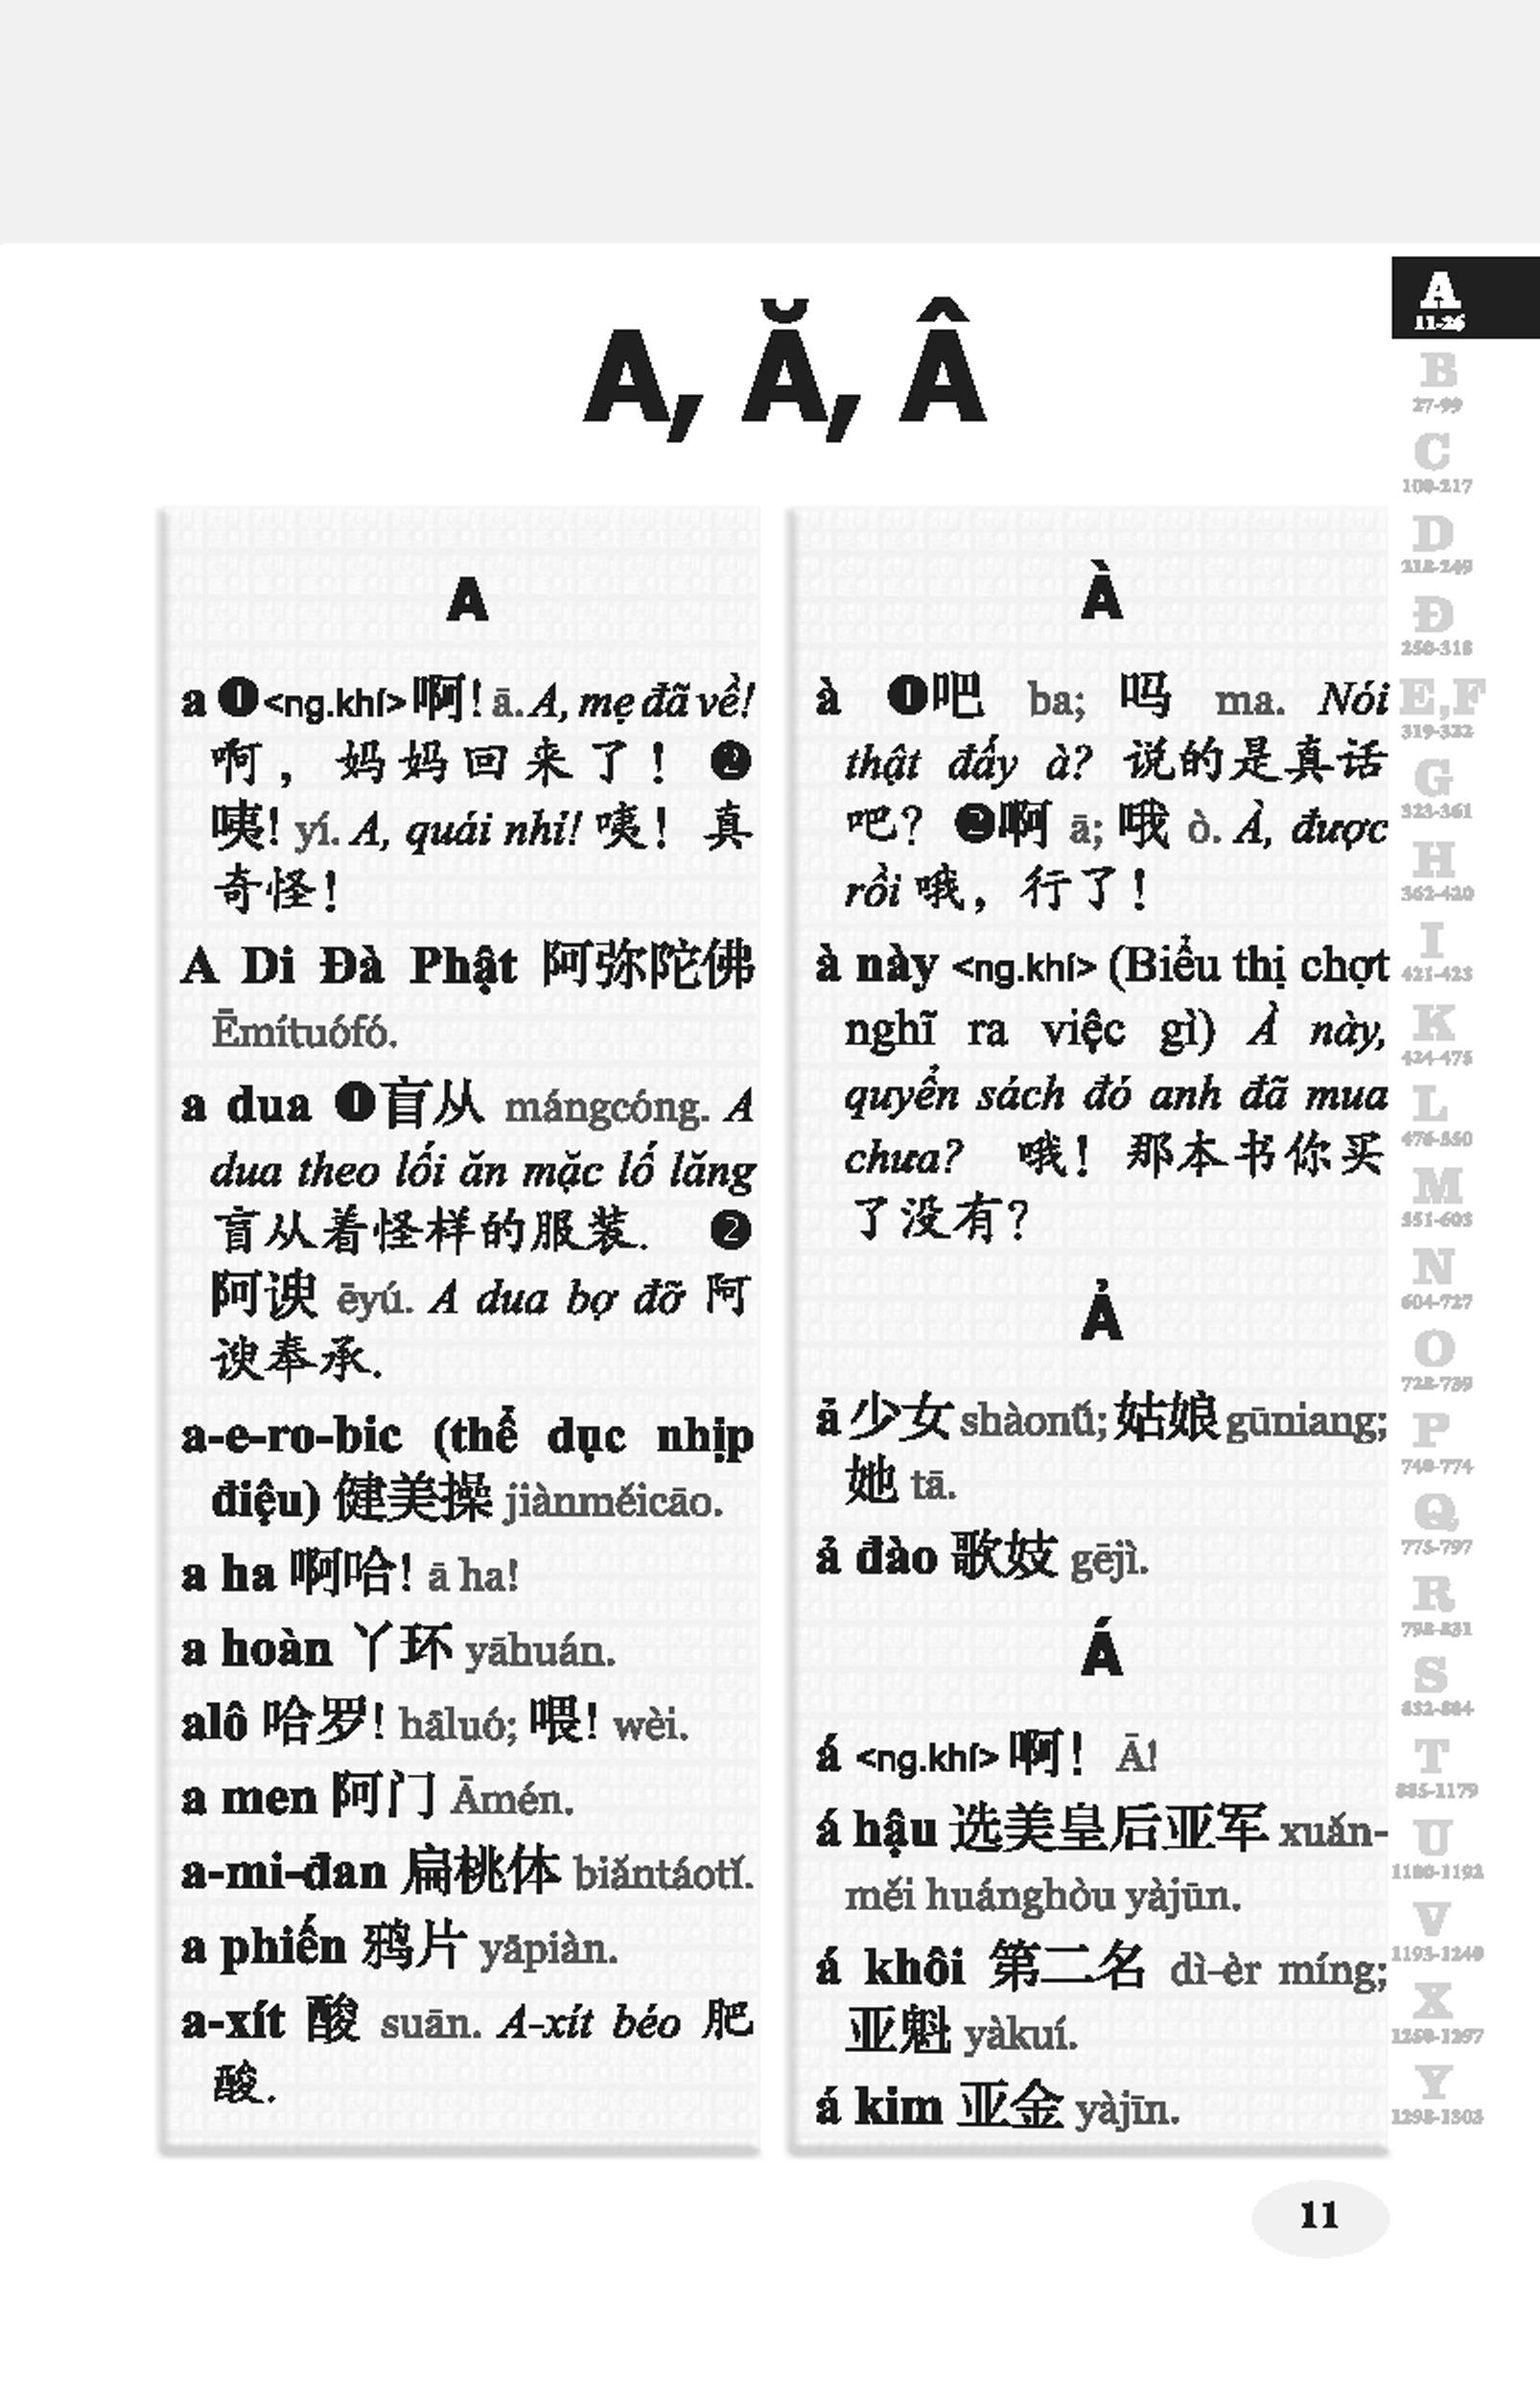 A, Ă, Â
A
a ❶<ng.khí> 啊! ā. A, mẹ đã về!
啊，妈妈回来了！ ❷
咦! yí. A, quái nhỉ! 咦！真
奇怪!
A Di Đà Phật 阿弥陀佛
Ēmítuófó.
a dua ❶盲从 mángcóng. A
dua theo lối ăn mặc lố lăng
盲从着怪样的服装. ❷
阿谀 ēyú. A dua bợ đỡ 阿
谀奉承.
a-e-ro-bic (thể dục nhịp
điệu) 健美操 jiànměicāo.
a ha 啊哈! ā ha!
a hoàn 丫环 yāhuán.
alô 哈罗! hāluó; 喂! wèi.
a men 阿门 Āmén.
a-mi-đan 扁桃体 biǎntáotǐ.
a phiến 鸦片 yāpiàn.
a-xít 酸 suān. A-xít béo 肥
酸.
À
à ❶吧 ba; 吗 ma. Nói
thật đấy à? 说的是真话
吧? ❷啊 ā; 哦 ò. À, được
rồi 哦，行了!
à này <ng.khí> (Biểu thị chợt
nghĩ ra việc gì) À này,
quyển sách đó anh đã mua
chưa? 哦! 那本书你买
了没有?
Ả
ả 少女 shàonǚ; 姑娘 gūniang;
她 tā.
ả đào 歌妓 gējì.
Á
á <ng.khí> 啊! Ā!
á hậu 选美皇后亚军 xuǎn-
měi huánghòu yàjūn.
á khôi 第二名 dì-èr míng;
亚魁 yàkuí.
á kim 亚金 yàjīn.
A
11-26
B
27-99
C
100-217
D
218-249
Đ
250-318
E,F
319-322
G
323-361
H
362-420
I
421-423
K
424-475
L
476-550
M
551-603
N
604-727
O
728-739
P
740-774
Q
775-797
R
798-831
S
832-884
T
885-1179
U
1180-1192
V
1193-1249
X
1250-1297
Y
1298-1303
11